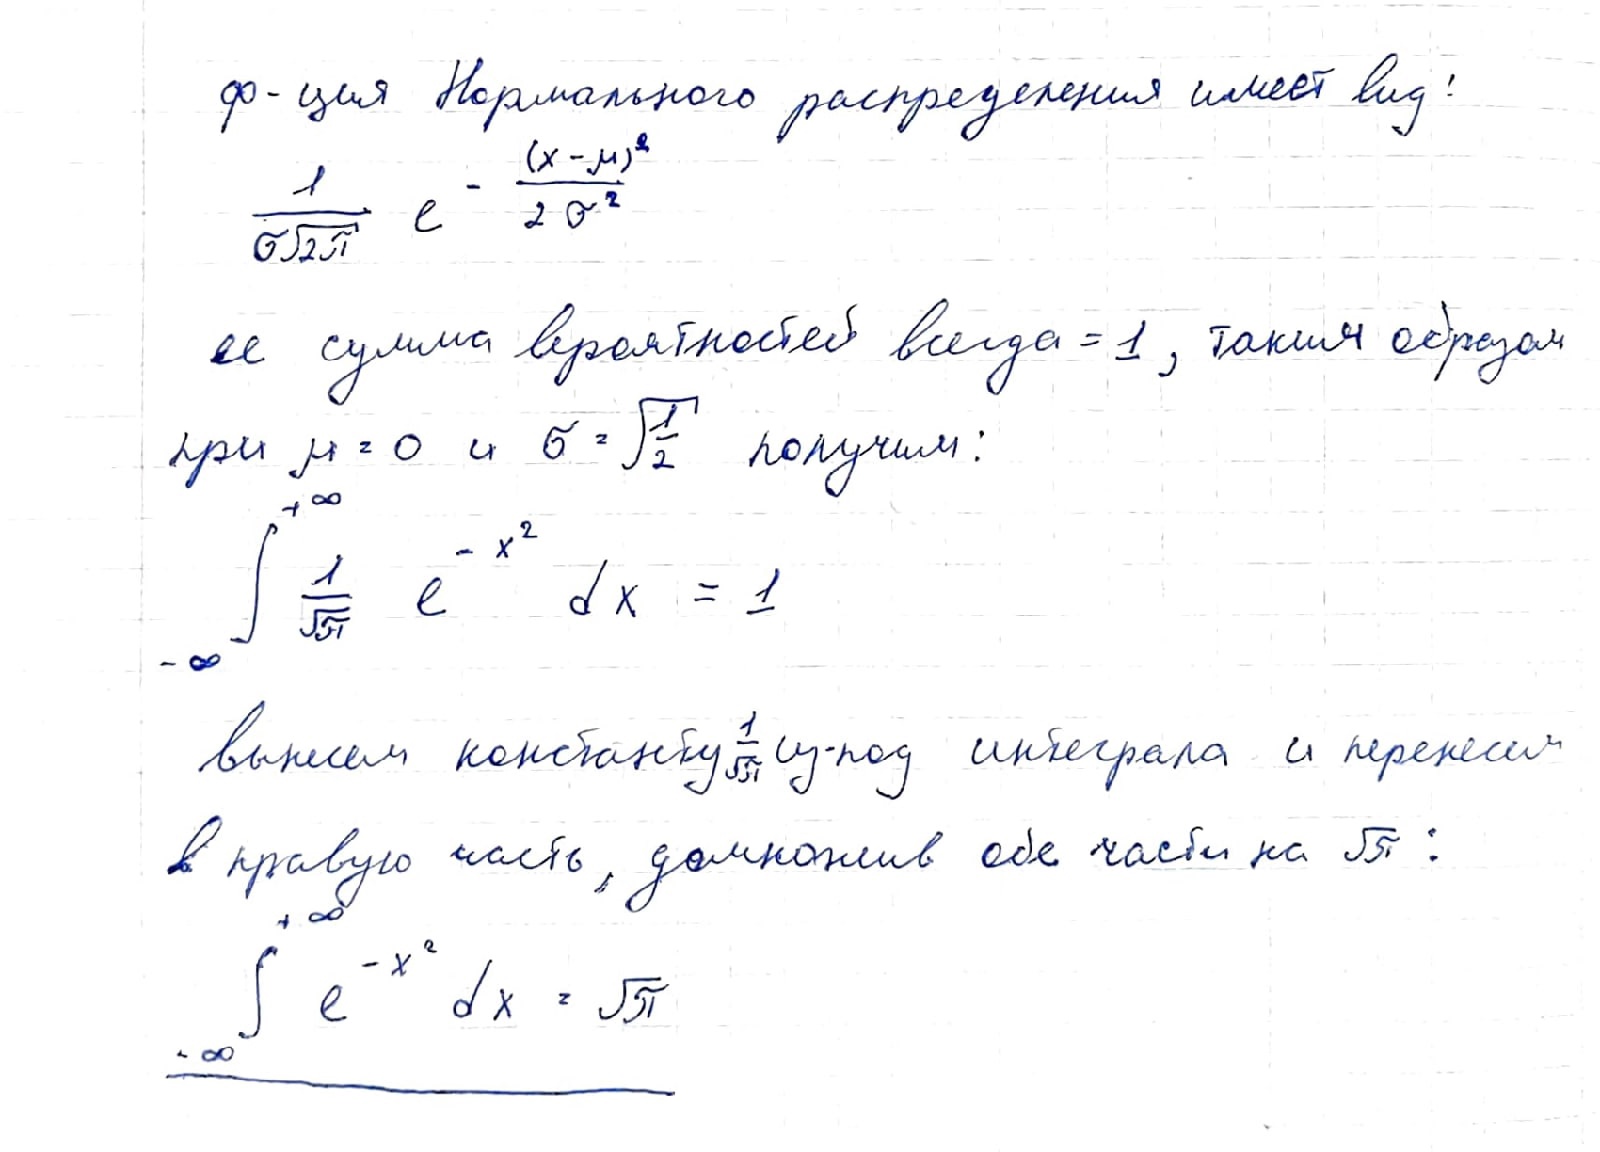 ф-ция Нормального распределения имеет вид:
1/(σ√2π) e^(-(x-μ)²/(2σ²))
ее сумма вероятностей всегда = 1, таким образом
при μ = 0 и σ = √(1/2) получим:
∫_{-∞}^{+∞} 1/√π e^(-x²) dx = 1
вынесем константу 1/√π из-под интеграла и перенесем
в правую часть, домножив обе части на √π:
∫_{-∞}^{+∞} e^(-x²) dx = √π